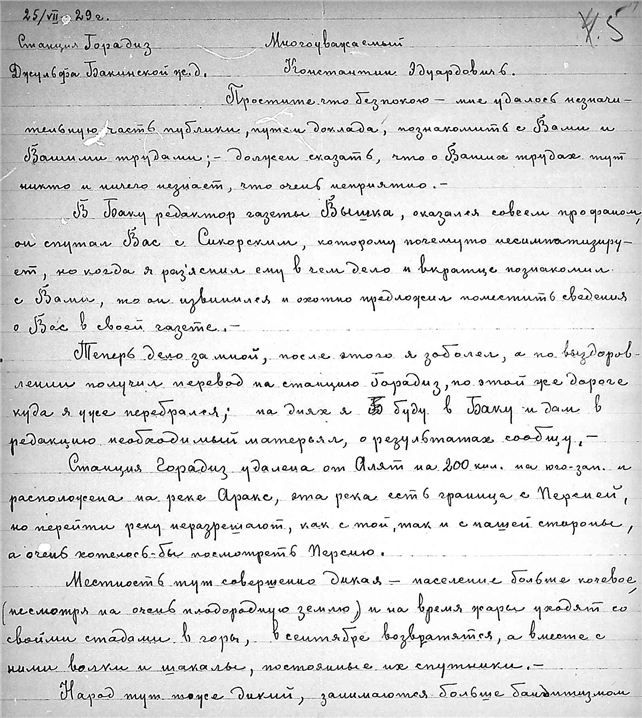 25/VII 29 г.
Станция Горадиз Многоуважаемый
Джульфа Бакинской ж.д. Константин Эдуардовичъ.
Простите что безпокою — мне удалось незначи-
тельную часть публики, путем доклада, познакомить с Вами и
Вашими трудами; — должен сказать, что о Ваших трудах тут
никто и ничего незнает, что очень неприятно. —
В Баку редактор газеты Вышка, оказался совсем профаном,
он спутал Вас с Сикорским, которому почемуто несимпатизиру-
ет, но когда я раз'яснил ему в чем дело и вкратце познакомил
с Вами, то он извинился и охотно предложил поместить сведения
о Вас в своей газете. —
Теперь дело за мной, после этого я заболел, а по выздоров-
лении получил перевод на станцию Горадиз, по этой же дороге
куда я уже перебрался; на днях я буду в Баку и дам в
редакцию необходимый матерьял, о результатах сообщу. —
Станция Горадиз удалена от Алят на 200 кил. на юго-зап. и
расположена на реке Аракс, эта река есть граница с Персией,
но перейти реку неразрешают, как с той, так и с нашей стороны,
а очень хотелось-бы посмотреть Персию.
Местность тут совершенно дикая — население больше кочевое,
(несмотря на очень плодородную землю) и на время жары уходят со
своими стадами в горы, в сентябре возвратятся, а вместе с
ними волки и шакалы, постоянные их спутники. —
Народ тут тоже дикий, занимаются больше бандитизмом